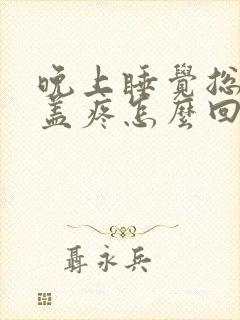 晚上睡覺總
蓋疼怎麼回
聶永兵